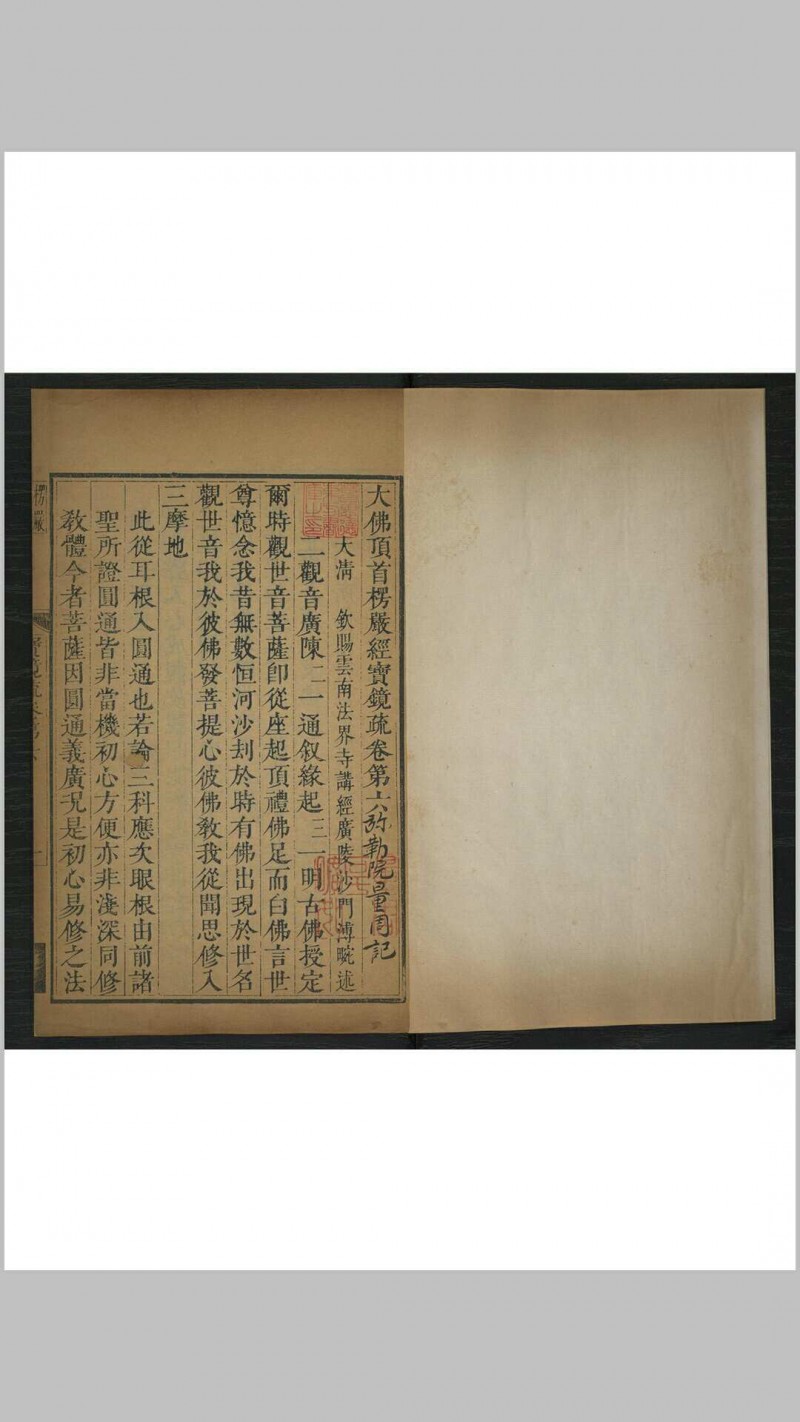 大佛頂首楞嚴經寶鏡疏卷第六弥勒院量周記
大清　欽賜雲南法界寺講經廣陵沙門溥畹述
二觀音廣陳二一通叙緣起三一明古佛授定
爾時觀世音菩薩卽從座起頂禮佛足而白佛言世
尊憶念我昔無數恒河沙刦於時有佛出現於世名
觀世音我於彼佛發菩提心彼佛敎我從聞思修入
三摩地
此從耳根入圓通也若論三科應次眼根由前諸
聖所證圓通皆非當機初心方便亦非淺深同修
敎體今者菩薩因圓通義廣況是初心易修之法
楞嚴